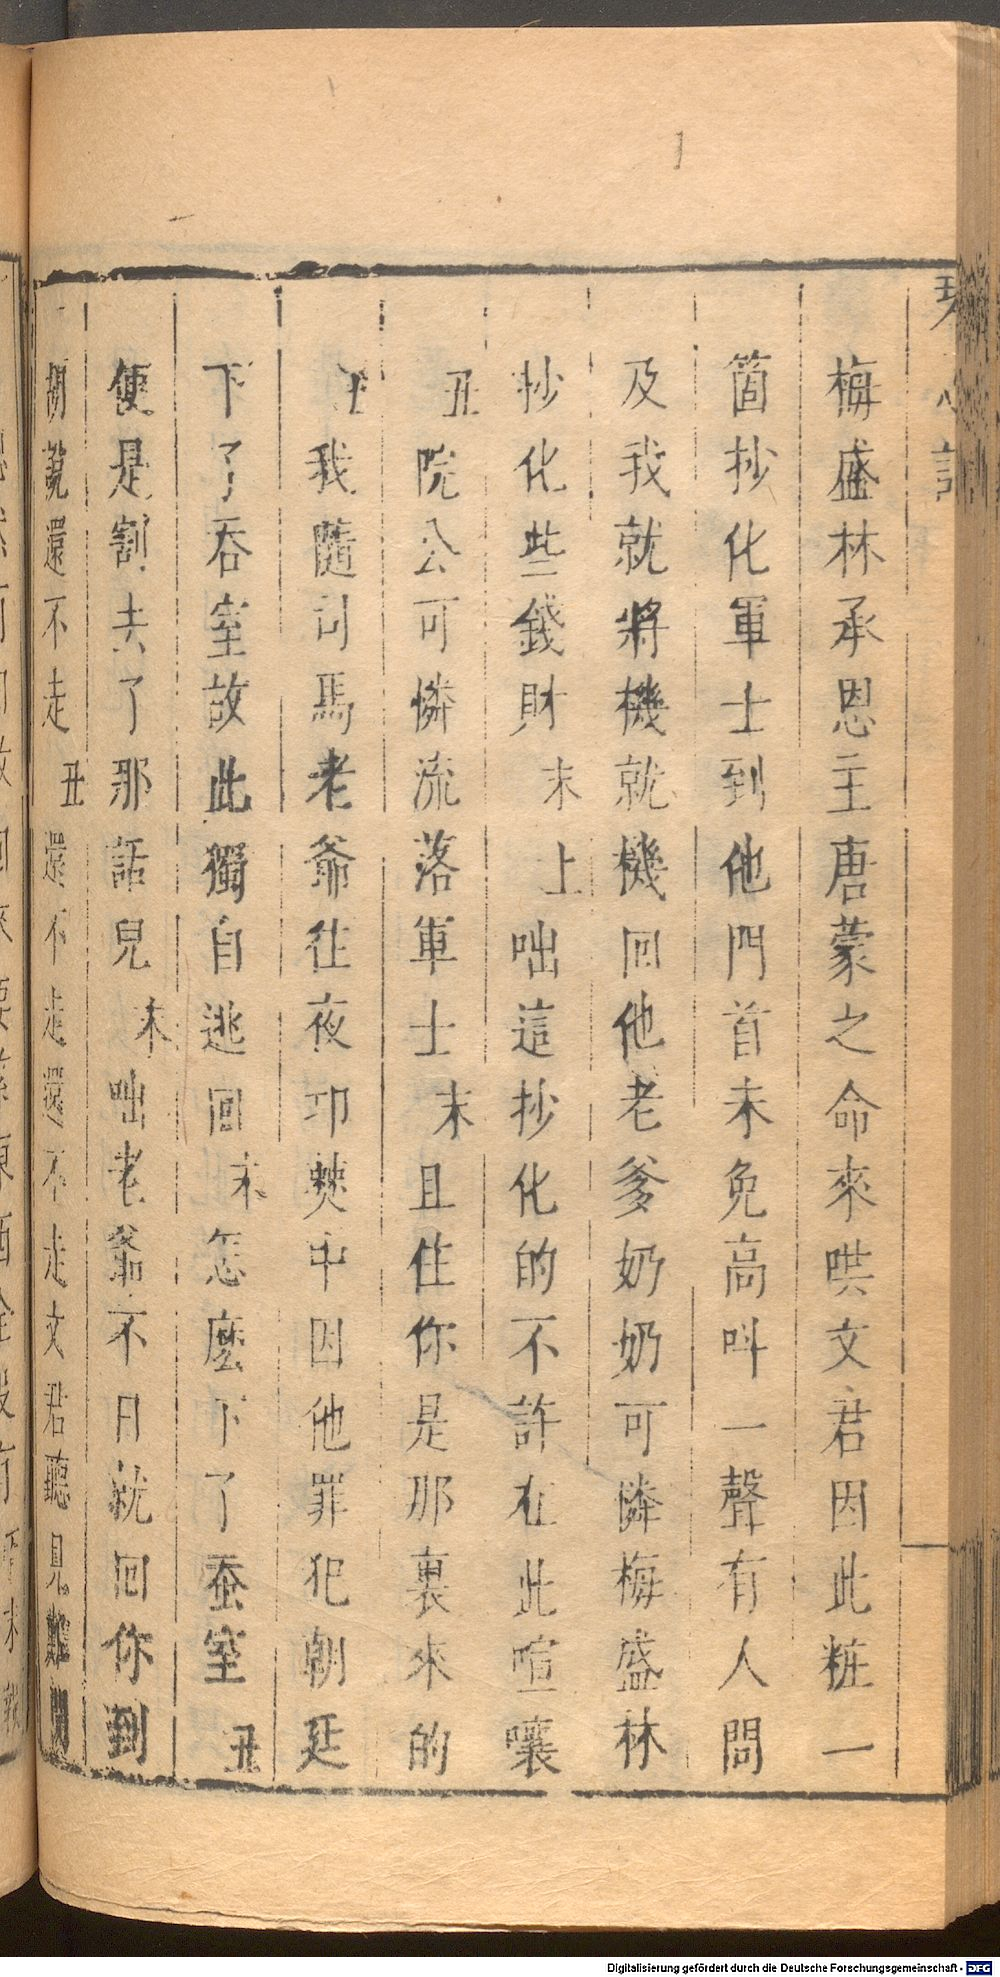 梅盛林承恩主唐蒙之命來哄文君因此粧一
箇抄化軍士到他門首未免高叫一聲有人問
及我就將機就機回他老爹奶奶可憐梅盛林
抄化些錢財末上咄這抄化的不許在此喧嚷
丑院公可憐流落軍士末且住你是那裏來的
丑我隨司馬老爺往夜卭僰中因他罪犯朝廷
下了吞室故此獨自逃回末怎麼下了蚕室丑
便是割去了那話兒末咄老爺不日就回你到
胡說還不走丑還不走還不走文君聽見
Digitalisierung gefördert durch die Deutsche Forschungsgemeinschaft - DFG